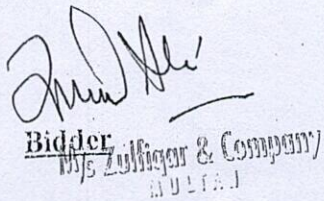 Bidder
M/s Zulfiqar & Company
MULTAN